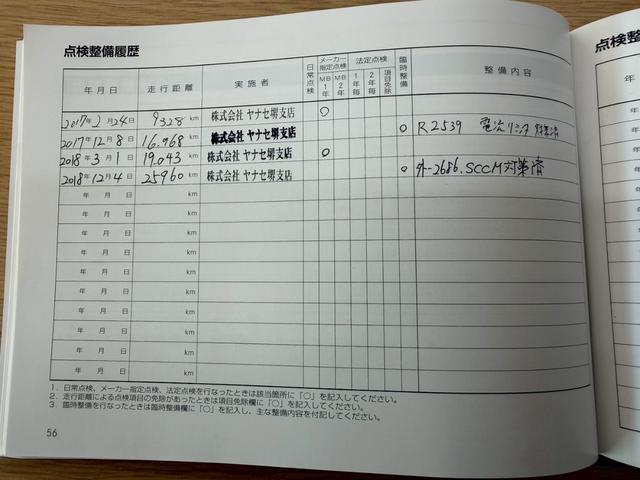 点検整備履歴
点検整
年月日 走行距離 実施者 日常点検 メーカー指定点検 MB1年 MB2年 法定点検 1年毎 2年毎 項目免除 臨時整備 整備内容
2017年2月24日 9328km 株式会社ヤナセ堺支店 ○
2017年12月8日 16.968km 株式会社ヤナセ堺支店 ○ R2539 電流リミッタ 対策済
2018年3月1日 19.043km 株式会社ヤナセ堺支店 ○
2018年12月4日 25960km 株式会社ヤナセ堺支店 ○ 外-2686.SCCM対策済
年月日 km
年月日 km
年月日 km
年月日 km
年月日 km
年月日 km
年月日 km
年月日 km
年月日 km
年月日 km
1．日常点検、メーカー指定点検、法定点検を行なったときは該当箇所に「○」を記入してください。
2．走行距離による点検項目の免除があったときは項目免除欄に「○」を記入してください。
3．臨時整備を行なったときは臨時整備欄に「○」を記入し、主な整備内容を付記してください。
56